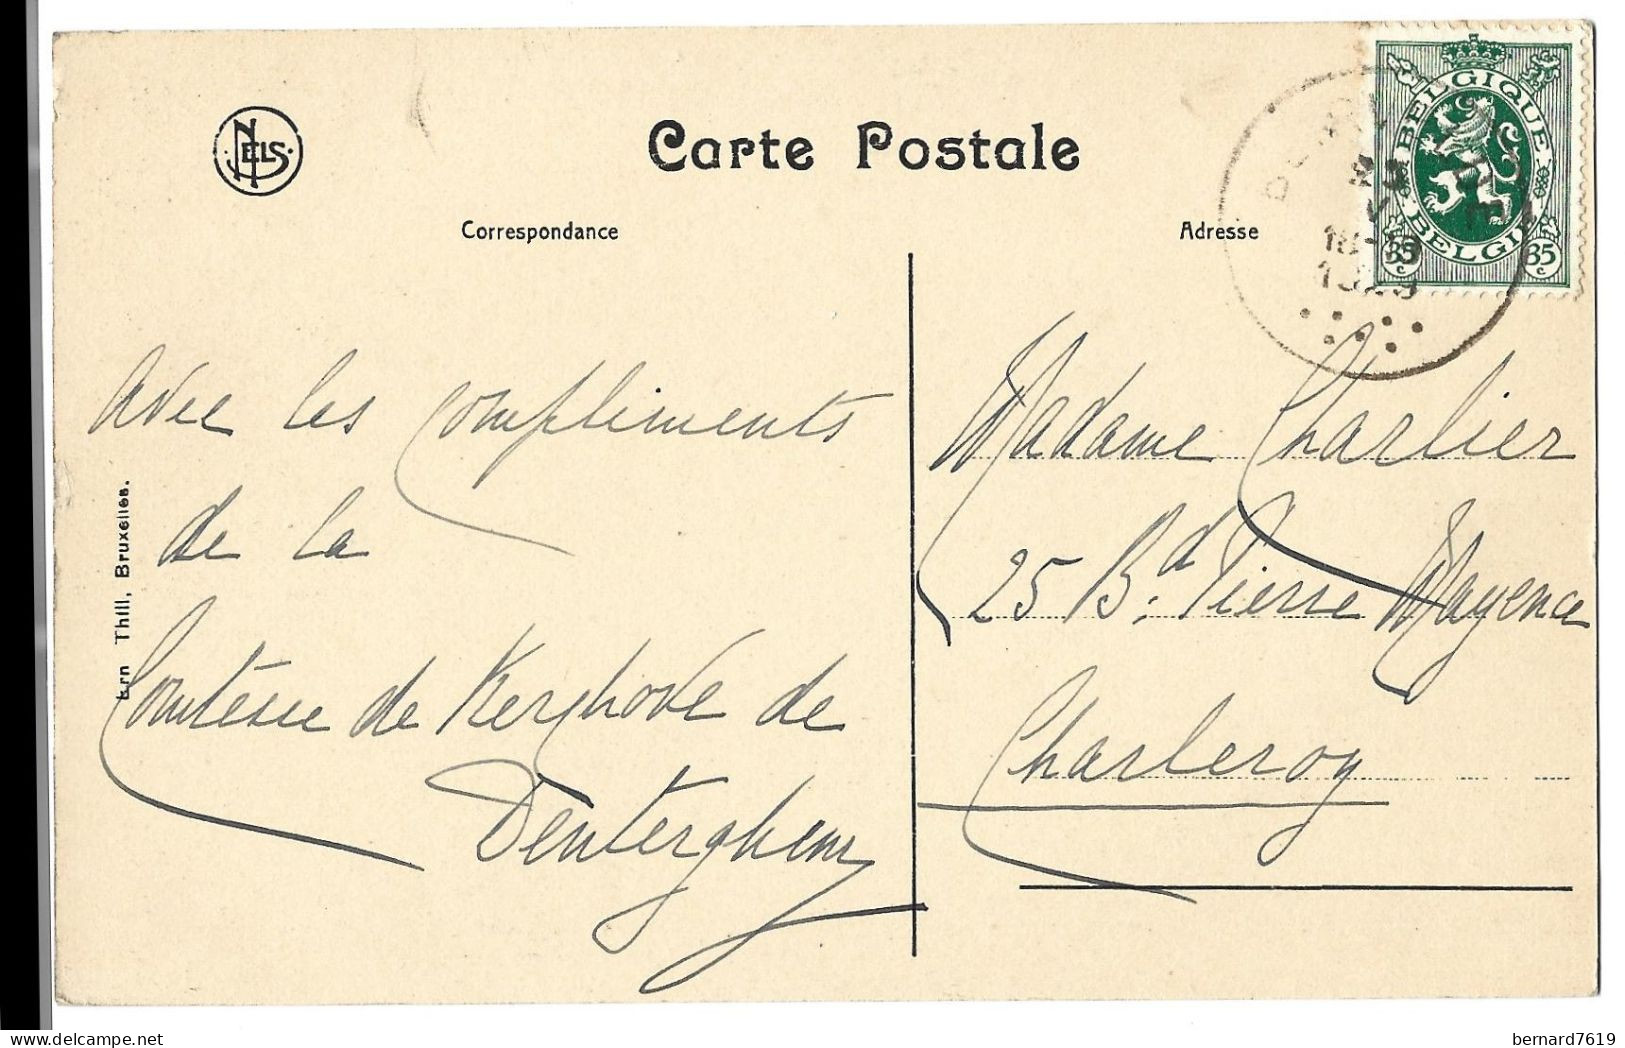 NELS
Carte Postale
Correspondance
Adresse
BELGIQUE
BELGIË
35 c
35 c
18-19
1929
Avec les compliments
de la
Comtesse de Kerchove de
Denterghem
Ern Thill, Bruxelles.
Madame Charlier
25 Bd. Pierre Mayence
Charleroy
bernard7619